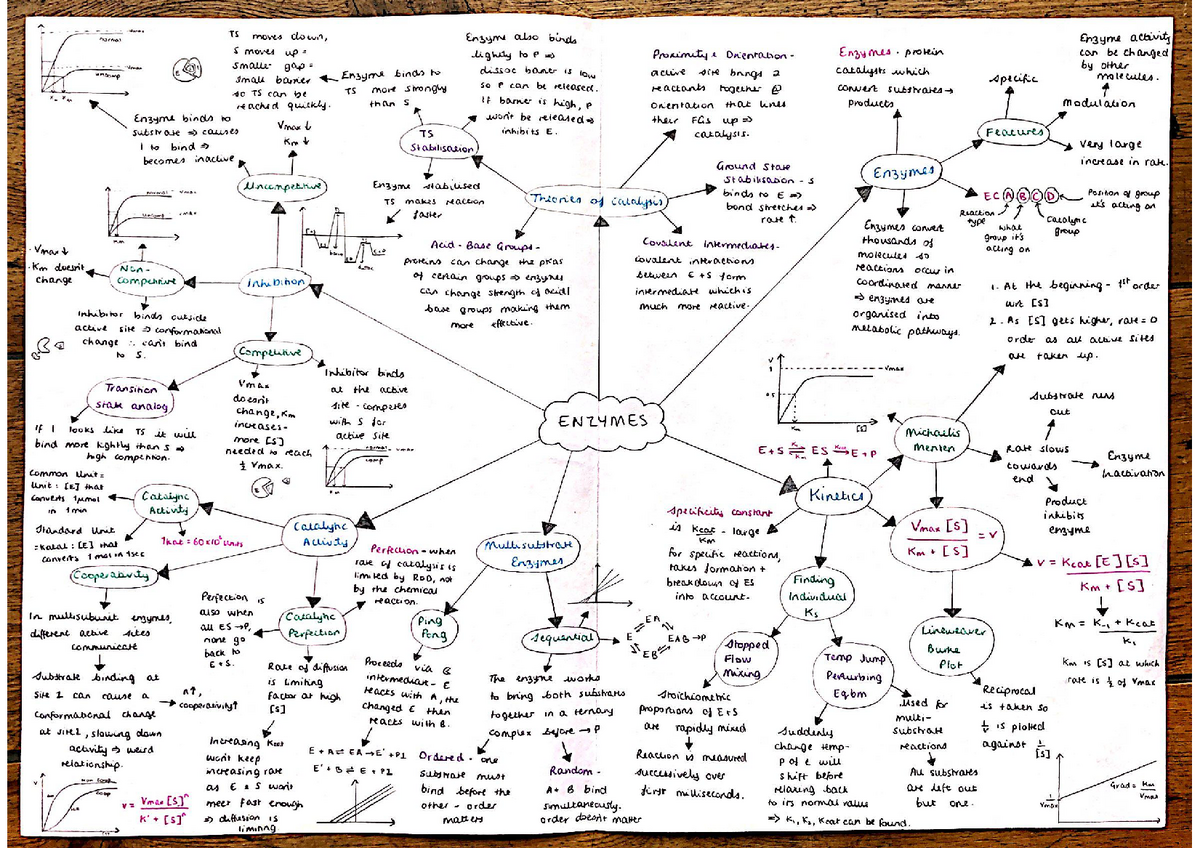 ENZYMES
Enzymes
Enzymes - protein
catalysts which
convert substrates →
products
Features
specific
modulation
Enzyme activity
can be changed
by other
molecules.
Very large
increase in rate.
EC A B C D
Reaction
type
what
group it's
acting on
Catalytic
group
Position of group
it's acting on
Enzymes convert
thousands of
molecules so
reactions occur in
coordinated manner
⇒ enzymes are
organised into
metabolic pathways.
Theories of Catalysis
Proximity & Orientation -
active site brings 2
reactants together @
orientation that lines
their FGs up ⇒
catalysis.
Ground State
Stabilisation - S
binds to E ⇒
bond stretches ⇒
rate ↑.
Covalent Intermediates -
covalent interactions
between E + S form
intermediate which is
much more reactive.
Acid - Base Groups -
proteins can change the pKas
of certain groups ⇒ enzymes
can change strength of acid/
base groups making them
more effective.
TS
Stabilisation
Enzyme also binds
tightly to P ⇒
dissoc barrier is low
so P can be released.
If barrier is high, P
won't be released ⇒
inhibits E.
Enzyme binds to
TS more strongly
than S
TS moves down,
S moves up =
smaller gap =
small barrier
so TS can be
reached quickly.
Enzyme stabilised
TS makes reaction
faster
Inhibition
Uncompetitive
Vmax ↓
Km ↓
Enzyme binds to
substrate ⇒ causes
I to bind ⇒
becomes inactive
Vmax
normal
Vmax
uncomp
Non-
Competitive
· Vmax ↓
· Km doesn't
change
Inhibitor binds outside
active site ⇒ conformational
change ∴ can't bind
to S.
normal
Vmax
Vmax
Km
Competitive
Vmax
doesn't
change, Km
increases -
more [S]
needed to reach
½ Vmax.
Inhibitor binds
at the active
site - competes
with S for
active site
normal
Vmax
comp
Transition
State analog
If I looks like TS it will
bind more tightly than S ⇒
high competition.
Catalytic
Activity
Catalytic
Activity
Common Unit =
Unit : [E] that
converts 1μmol
in 1 min
Standard Unit
= Katal : [E] that
converts 1 mol in 1 sec
1 kat = 60×10⁶ units
Cooperativity
In multisubunit enzymes,
different active sites
communicate
Substrate binding at
site 2 can cause a
conformational change
at site 1, slowing down
activity ⇒ weird
relationship.
n↑,
cooperativity↑
v = Vmax [S]ⁿ
K' + [S]ⁿ
Catalytic
Perfection
Perfection - when
rate of catalysis is
limited by ROD, not
by the chemical
reaction.
Perfection is
also when
all ES → P,
none go
back to
E + S.
Rate of diffusion
is limiting
factor at high
[S]
Increasing Kcat
won't keep
increasing rate
as E & S won't
meet fast enough
⇒ diffusion is
limiting
Multisubstrate
Enzymes
Ping
Pong
Proceeds via E
intermediate - E
reacts with A, the
changed E then
reacts with B.
E + A ⇌ EA → E' + P1
E' + B ⇌ E + P2
Sequential
E
EA
EB
EAB → P
The enzyme works
to bring both substrates
together in a ternary
complex before → P
Ordered - one
substrate must
bind before the
other - order
matters
Random -
A + B bind
simultaneously.
order doesn't matter
Kinetics
E + S ⇌ ES → E + P
Specificity constant
is Kcat - large
Km
for specific reactions,
takes formation +
breakdown of ES
into account.
Finding
Individual
Ks
Stopped
Flow
Mixing
Stoichiometric
proportions of E + S
are rapidly mixed
Reaction is measured
successively over
first milliseconds.
Temp Jump
Perturbing
Eqbm
Suddenly
change temp -
P of E will
shift before
relaxing back
to its normal value
⇒ K₁, K₂, Kcat can be found.
Used for
multi-
substrate
reactions
All substrates
are left out
but one.
Michaelis
Menten
V
1
0.5
Vmax
Km
[S]
1. At the beginning - 1st order
wrt [S]
2. As [S] gets higher, rate = 0
order as all active sites
are taken up.
Rate slows
towards
end
Substrate runs
out
Enzyme
Inactivation
Product
inhibits
enzyme
Vmax [S] = v
Km + [S]
v = Kcat [E] [S]
Km + [S]
Km = K₋₁ + Kcat
K₁
Km is [S] at which
rate is ½ of Vmax
Lineweaver
Burke
Plot
Reciprocal
is taken so
1/v is plotted
against 1/[S]
Grad = Km
Vmax
1
Vmax